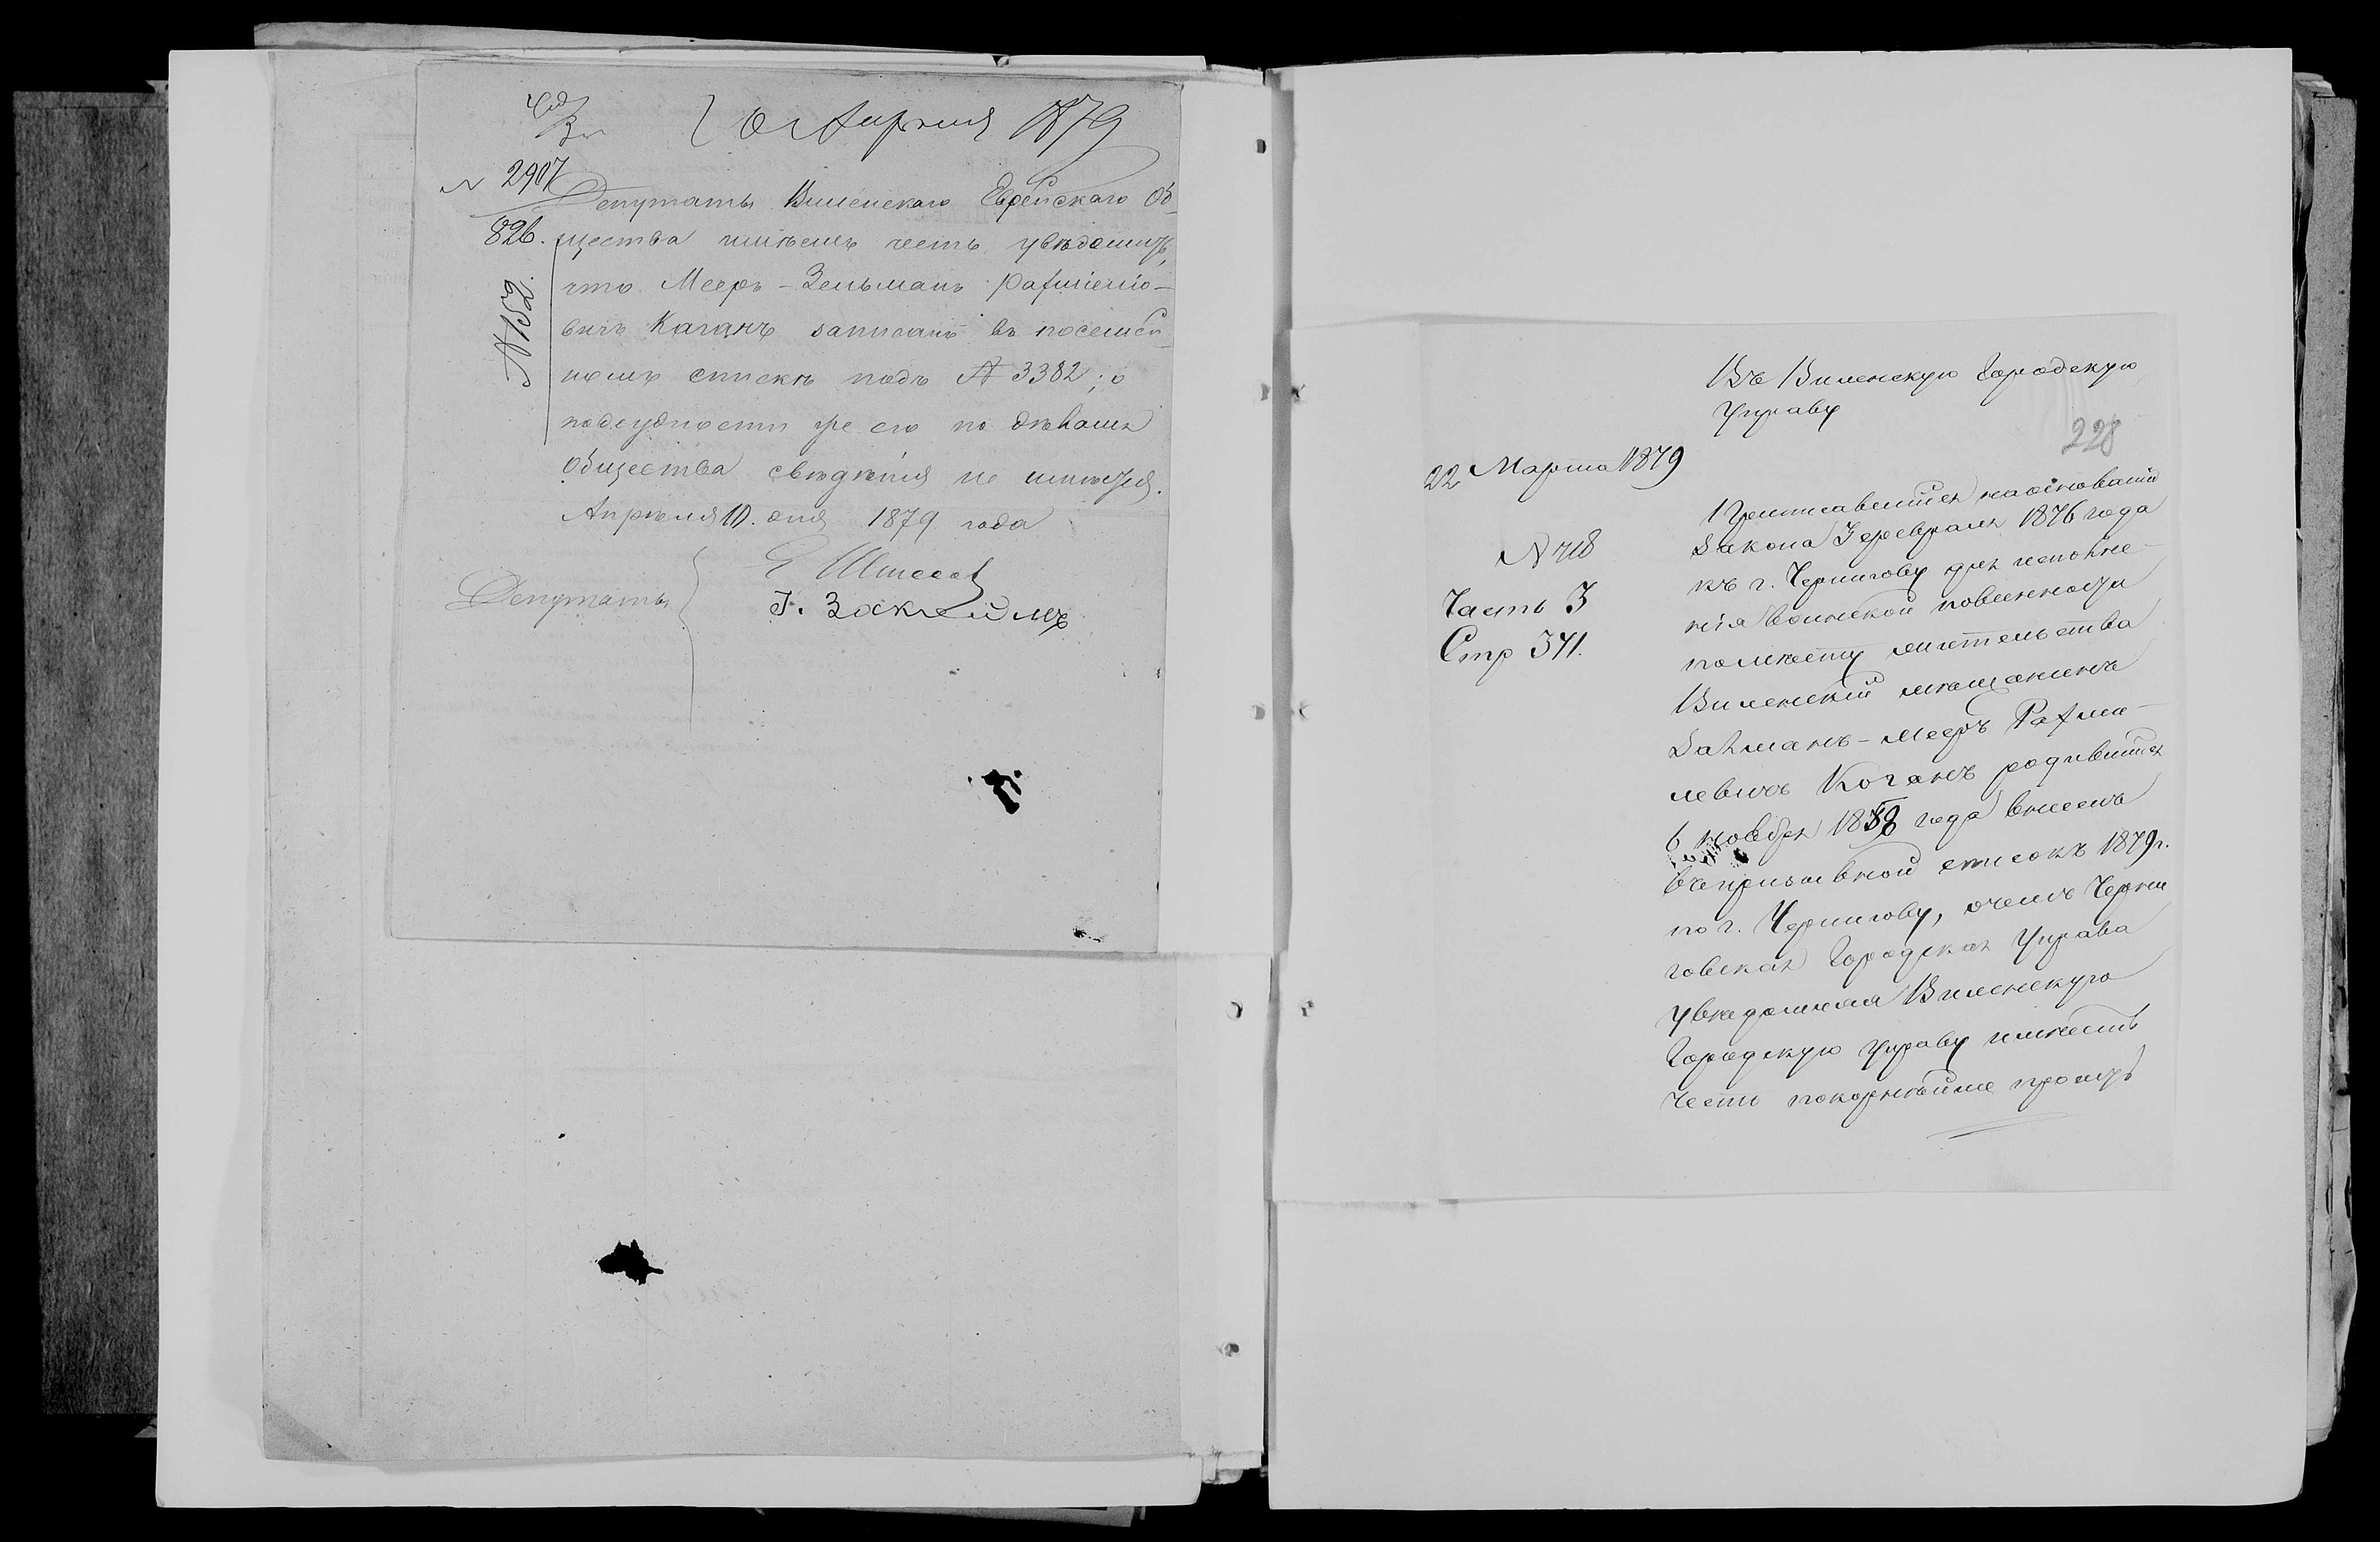 10 Апреля 1879
№ 2907
826.
№ 152.
Депутаты Виленскаго Еврейскаго Об-
щества имѣемъ честь увѣдомить,
что Мееръ-Зельманъ Рахмiелiо-
вичъ Каганъ записанъ въ посемей-
номъ спискѣ подъ № 3382; о
подсудности же его по дѣламъ
общества свѣденiя не имѣется.
Апрѣля 10. дня 1879 года
Депутаты
Въ Виленскую Городскую
Управу
228
22 Марта 1879
№ 718
Часть 3
Стр 341.
Приписавшийся на основании
закона 3 февраля 1876 года
къ г. Чернигову для исполне-
нiя воинской повинности
по мѣсту жительства
Виленский мѣщанинъ
Залманъ-Мееръ Рахми-
левичъ Коганъ родившийся
6 ноября 1858 года внесенъ
въ призывной списокъ 1879 г.
по г. Чернигову, о чемъ Черни
говская Городская Управа
увѣдомляя Виленскую
Городскую Управу имѣетъ
честь покорнѣйше просить